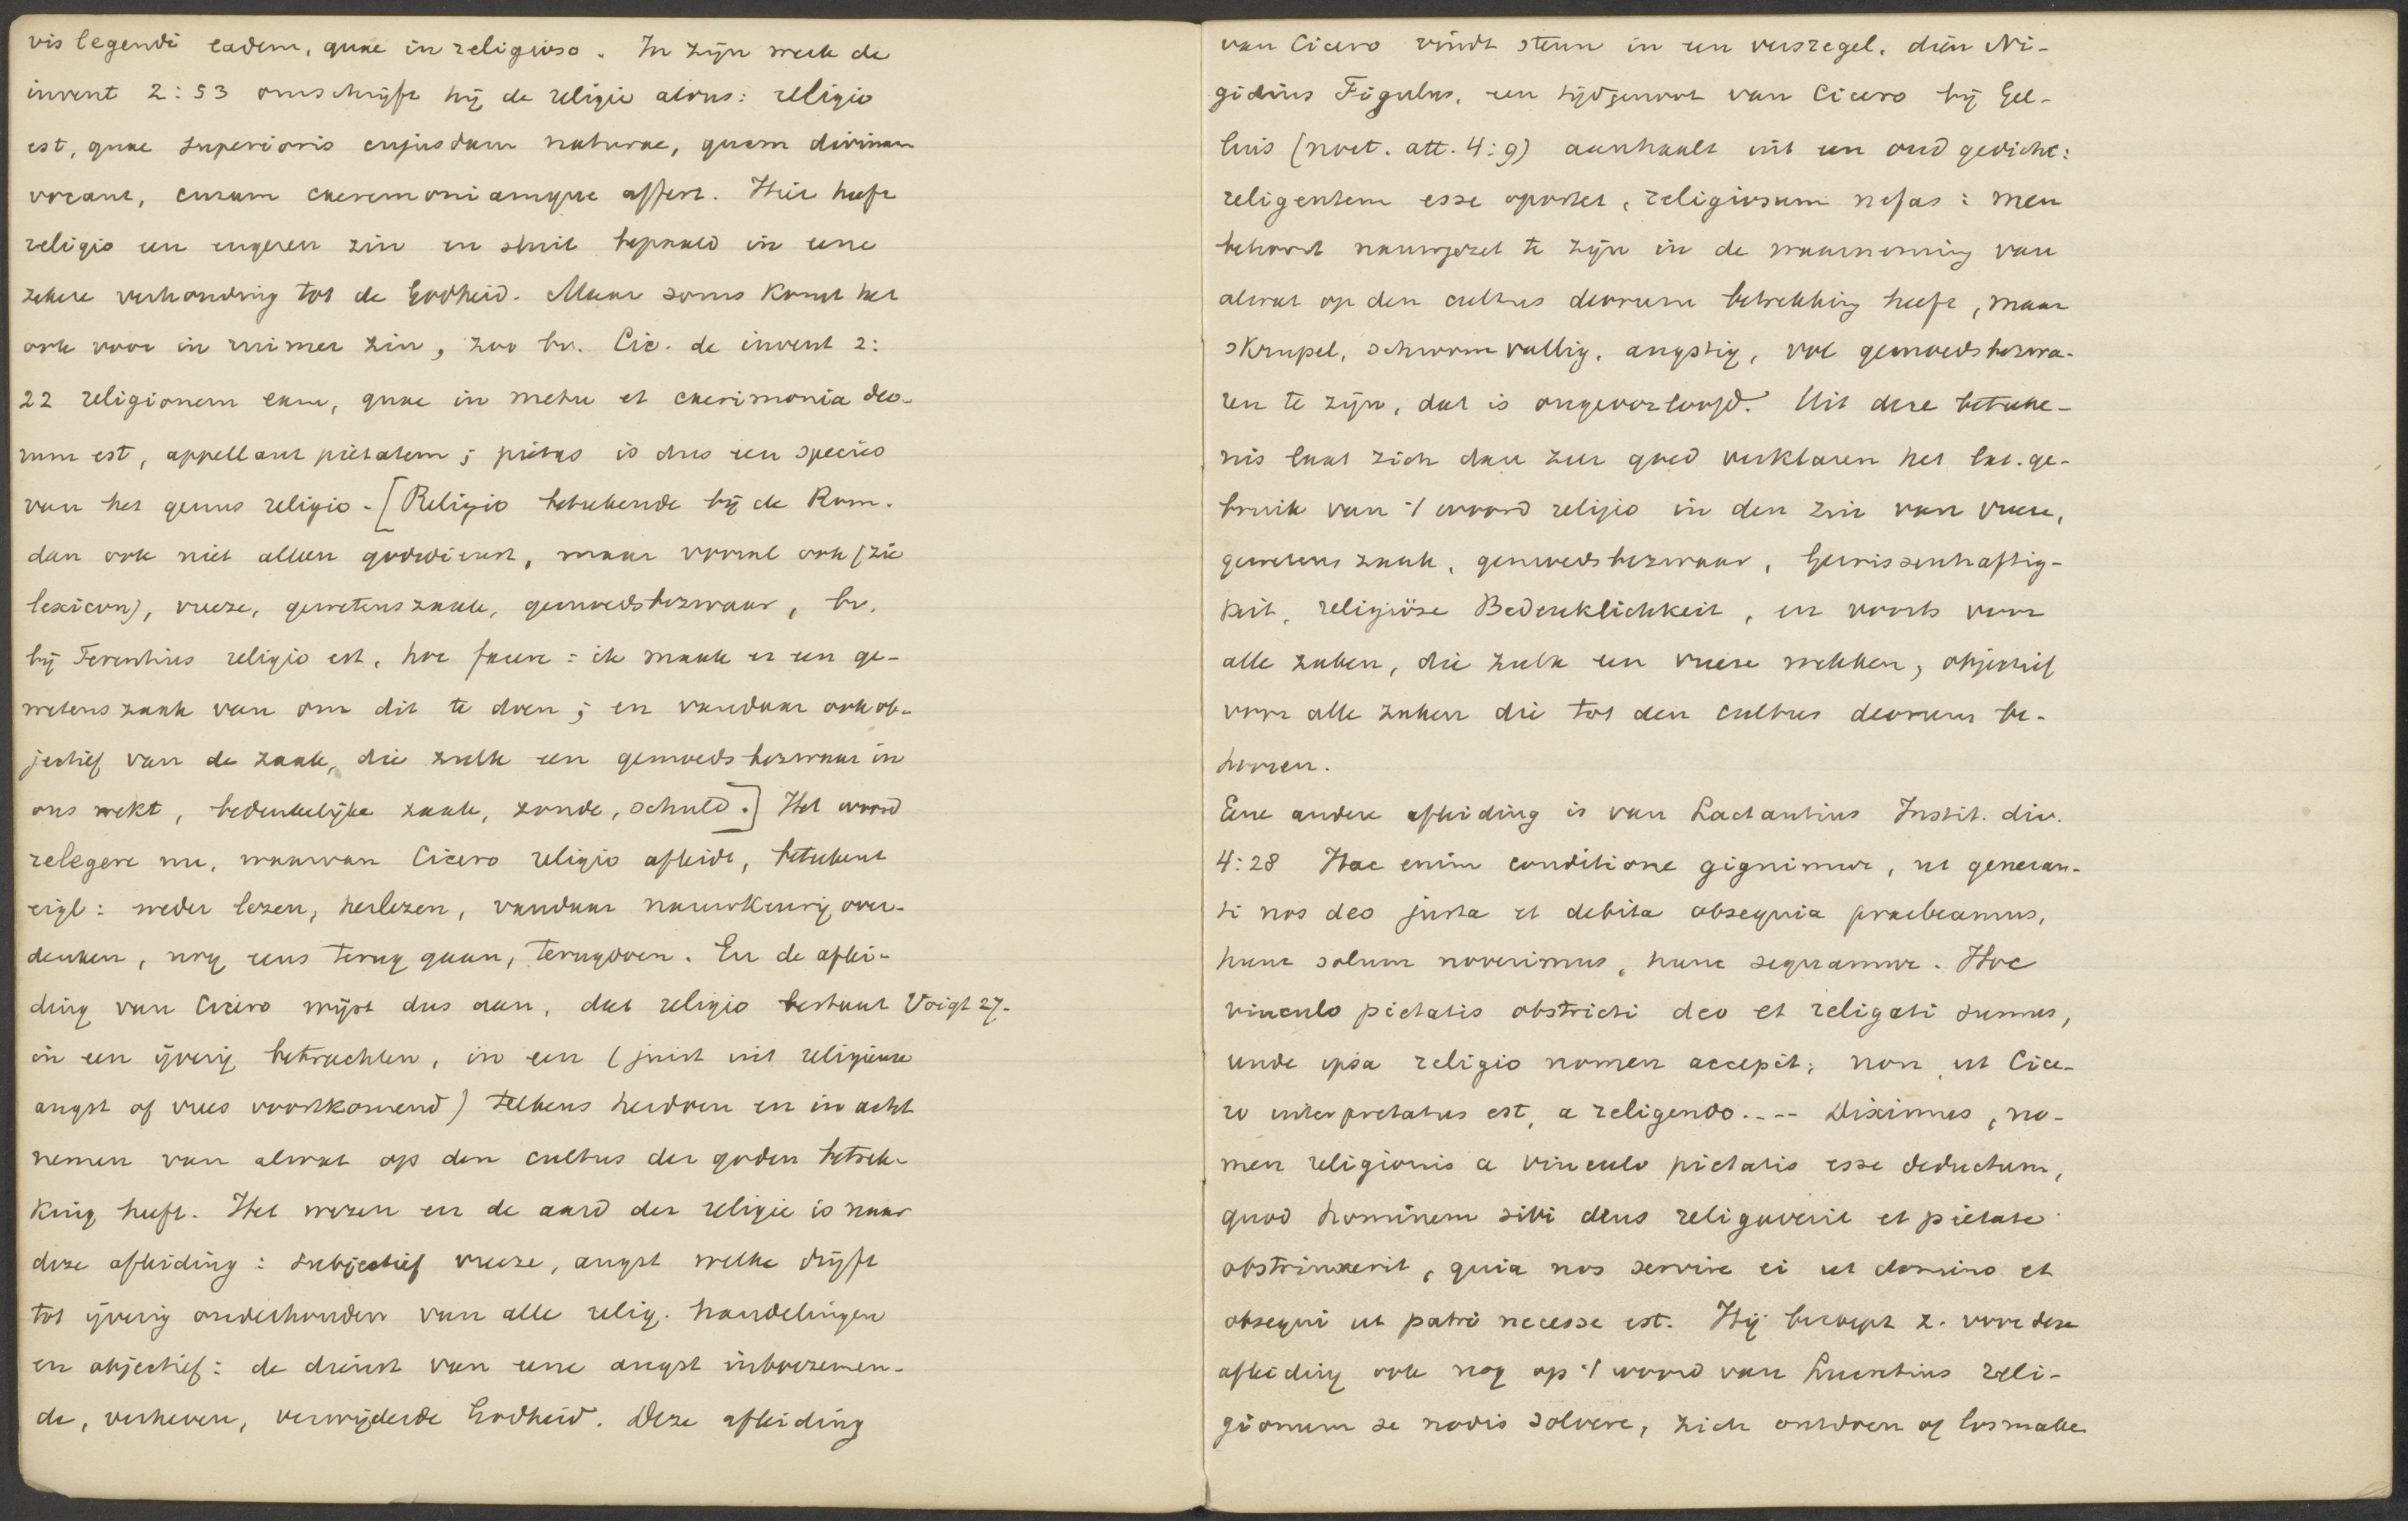 vis legendi eadem, quae in religioso. In zijn werk de
invent 2:53 omschrijft hij de religie aldus: religio
est, quae superioris cujusdam naturae, quam divinam
vocant, curam caeremoniamque affert. Hier heeft
religio een engeren zin en sluit bepaald in eene
zekere verhouding tot de Godheid. Maar soms komt het
ook voor in ruimer zin, zoo bv. Cic. de invent 2:
22 religionem eam, quae in metu et caerimonia deo-
rum est, appellant pietatem; pietas is dus een species
van het genus religio. [Religio beteekende bij de Rom.
dan ook niet alleen godsdienst, maar vooral ook (zie
lexicon), vreeze, gewetenszaak, gemoedsbezwaar, bv.
bij Terentius religio est, hoc facere = ik maak er een ge-
wetenszaak van om dit te doen; en vandaar ook ob-
jectief van de zaak, die zulk een gemoedsbezwaar in
ons wekt, bedenkelijke zaak, zonde, schuld.] Het woord
relegere nu, waarvan Cicero religio afleidt, beteekent
eigl: weder lezen, herlezen, vandaar nauwkeurig over-
denken, nog eens terug gaan, terugdoen. En de aflei-
ding van Cicero wijst dus aan, dat religio bestaat Voigt 27.
in een ijverig betrachten, in een (juist uit religieuse
angst of vrees voortkomend) telkens herdoen en in acht
nemen van alwat op den cultus der goden betrek-
king heeft. Het wezen en de aard der religie is naar
deze afleiding: subjectief vreeze, angst welke drijft
tot ijverig onderhouden van alle relig. handelingen
en objectief: de dienst van eene angst inboezemen-
de, verheven, verwijderde Godheid. Deze afleiding
van Cicero vindt steun in een versregel, dien Ni-
gidius Figulus, een tijdgenoot van Cicero bij Gel-
lius (noct. att. 4:9) aanhaalt uit een oud gedicht:
religentem esse oportet, religiosum nefas: men
behoort nauwgezet te zijn in de waarneming van
alwat op den cultus deorum betrekking heeft, maar
skrupel, schroomvallig, angstig, vol gemoedsbezwa-
ren te zijn, dat is ongeoorloofd. Uit deze beteeke-
nis laat zich dan zeer goed verklaren het lat. ge-
bruik van 't woord religio in den zin van vreeze,
gewetenszaak, gemoedsbezwaar, Gewissenhaftig-
keit, religiöse Bedenklichkeit, en voorts voor
alle zaken, die zulk een vreeze wekken, objectief
voor alle zaken die tot den cultus deorum be-
hooren.
Eene andere afleiding is van Lactantius Instit. div.
4:28 Hac enim conditione gignimur, ut generan-
ti nos deo justa et debita obsequia praebeamus,
hunc solum noverimus, hunc sequamur. Hoc
vinculo pietatis obstricti deo et religati sumus,
unde ipsa religio nomen accepit, non ut Cice-
ro interpretatus est, a religendo.... Diximus, no-
men religionis a vinculo pietatis esse deductum,
quod hominem sibi deus religaverit et pietate
obstrinxerit, quia nos servire ei ut domino et
obsequi ut patri necesse est. Hij beroept z. voor deze
afleiding ook nog op 't woord van Lucretius reli-
gionum se nodis solvere, zich ontdoen of losmaken